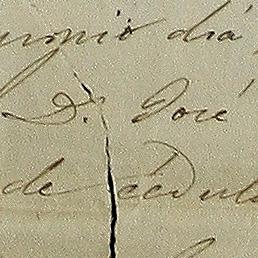 propio dia
D. José
de cédula